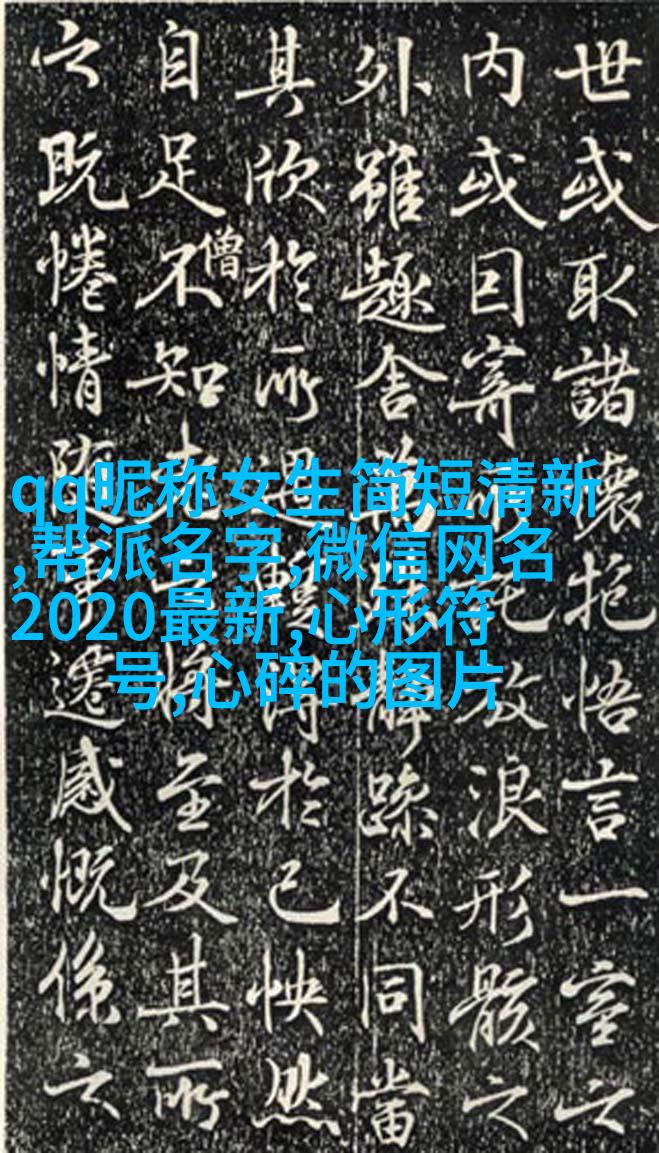 世或取諸懷抱悟言一室之
内或因寄所託放浪形骸之
外雖趣舍萬殊静躁不同當
其欣於所遇暫得於己怏然
自足不知老之將至及其所
僧
之既惓情随事遷感慨係之
qq昵称女生简短清新
,帮派名字,微信网名
2020最新,心形符
号,心碎的图片